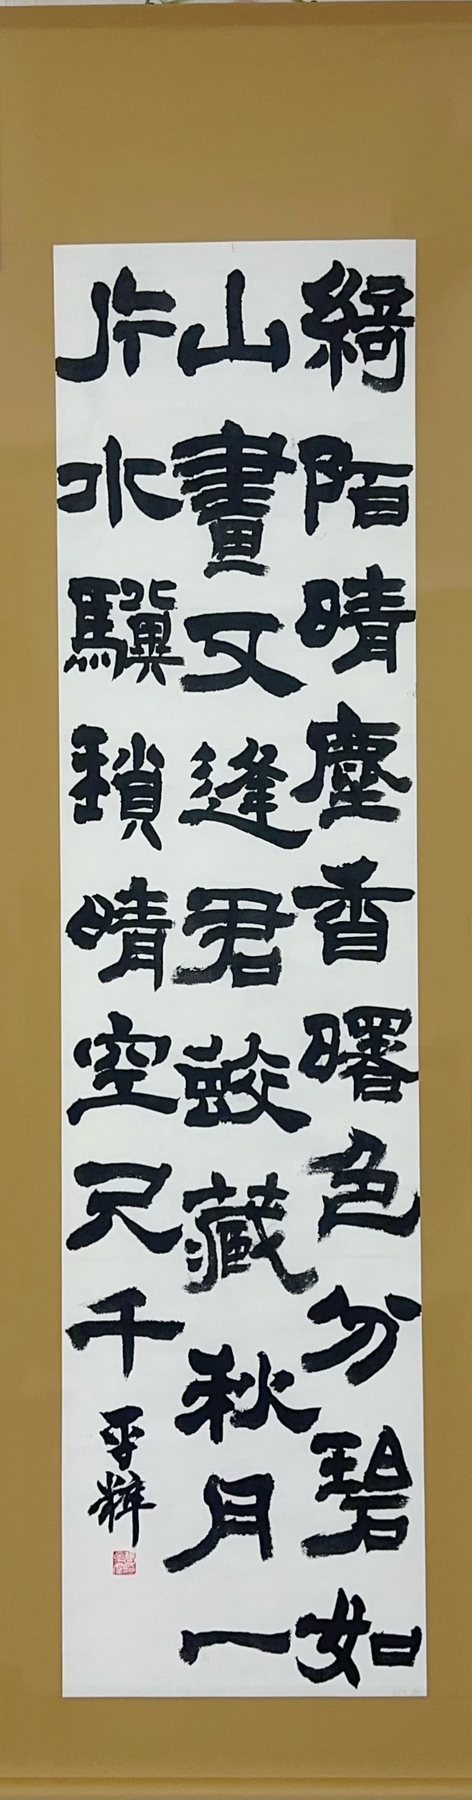 綺陌晴塵香曙色分碧如
山畫又逢君蛟藏秋月一
片水驥鎖晴空尺千